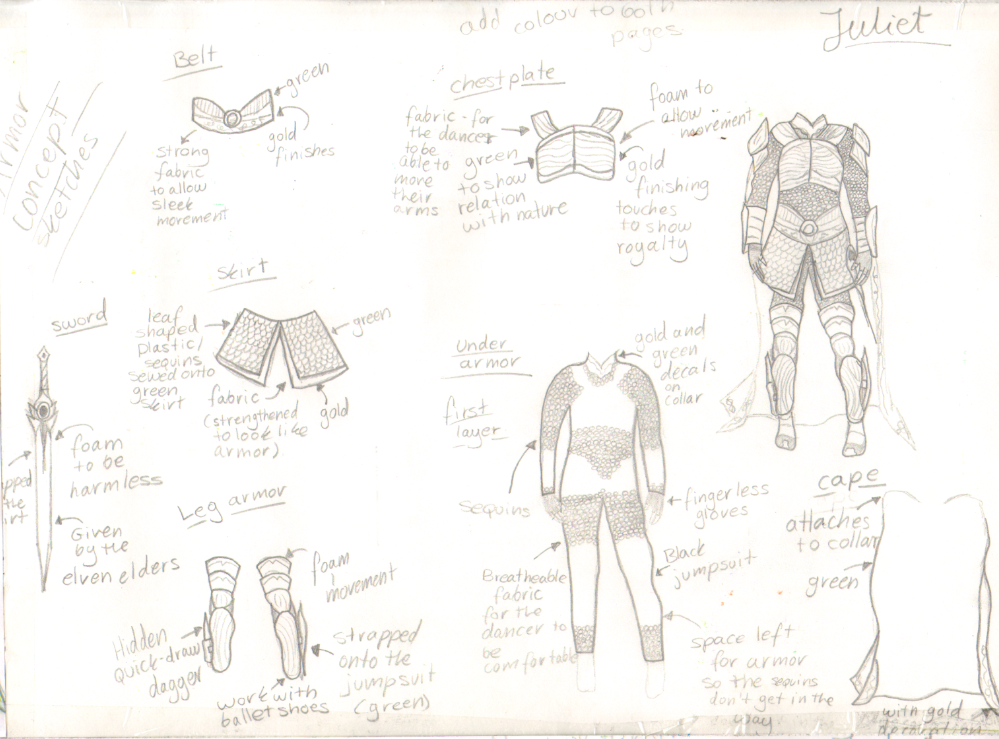 add colour to both
pages
Juliet
Armor
concept
sketches
Belt
green
gold
finishes
strong
fabric
to allow
sleek
movement
chestplate
fabric - for
the dancer
to be
able to
more
their
arms
green
to show
relation
with nature
foam to
allow
movement
gold
finishing
touches
to show
royalty
Skirt
leaf
shaped
plastic/
sequins
sewed onto
green
skirt
green
fabric
(strengthened
to look like
armor).
gold
sword
foam
to be
harmless
Given
by the
elven elders
Leg armor
foam
movement
Hidden
quick-draw
dagger
work with
ballet shoes
strapped
onto the
jumpsuit
(green)
Under
armor
first
layer
gold and
green
decals
on
collar
sequins
fingerless
gloves
Black
jumpsuit
Breatheable
fabric
for the
dancer to
be
comfortable
space left
for armor
so the sequins
don't get in the
way
cape
attaches
to collar
green
with gold